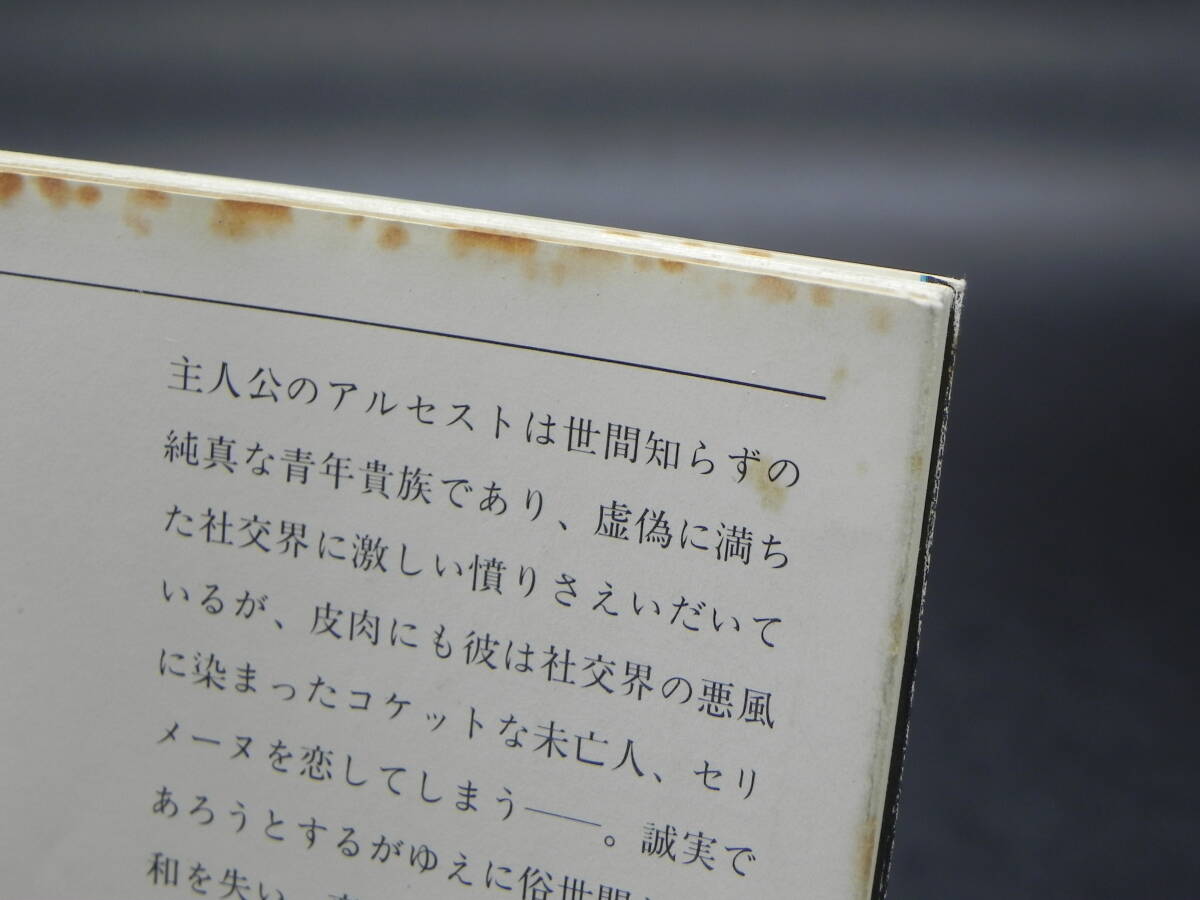 主人公のアルセストは世間知らずの
純真な青年貴族であり、虚偽に満ち
た社交界に激しい憤りさえいだいて
いるが、皮肉にも彼は社交界の悪風
に染まったコケットな未亡人、セリ
メーヌを恋してしまう――。誠実で
あろうとするがゆえに俗世間
和を失い、